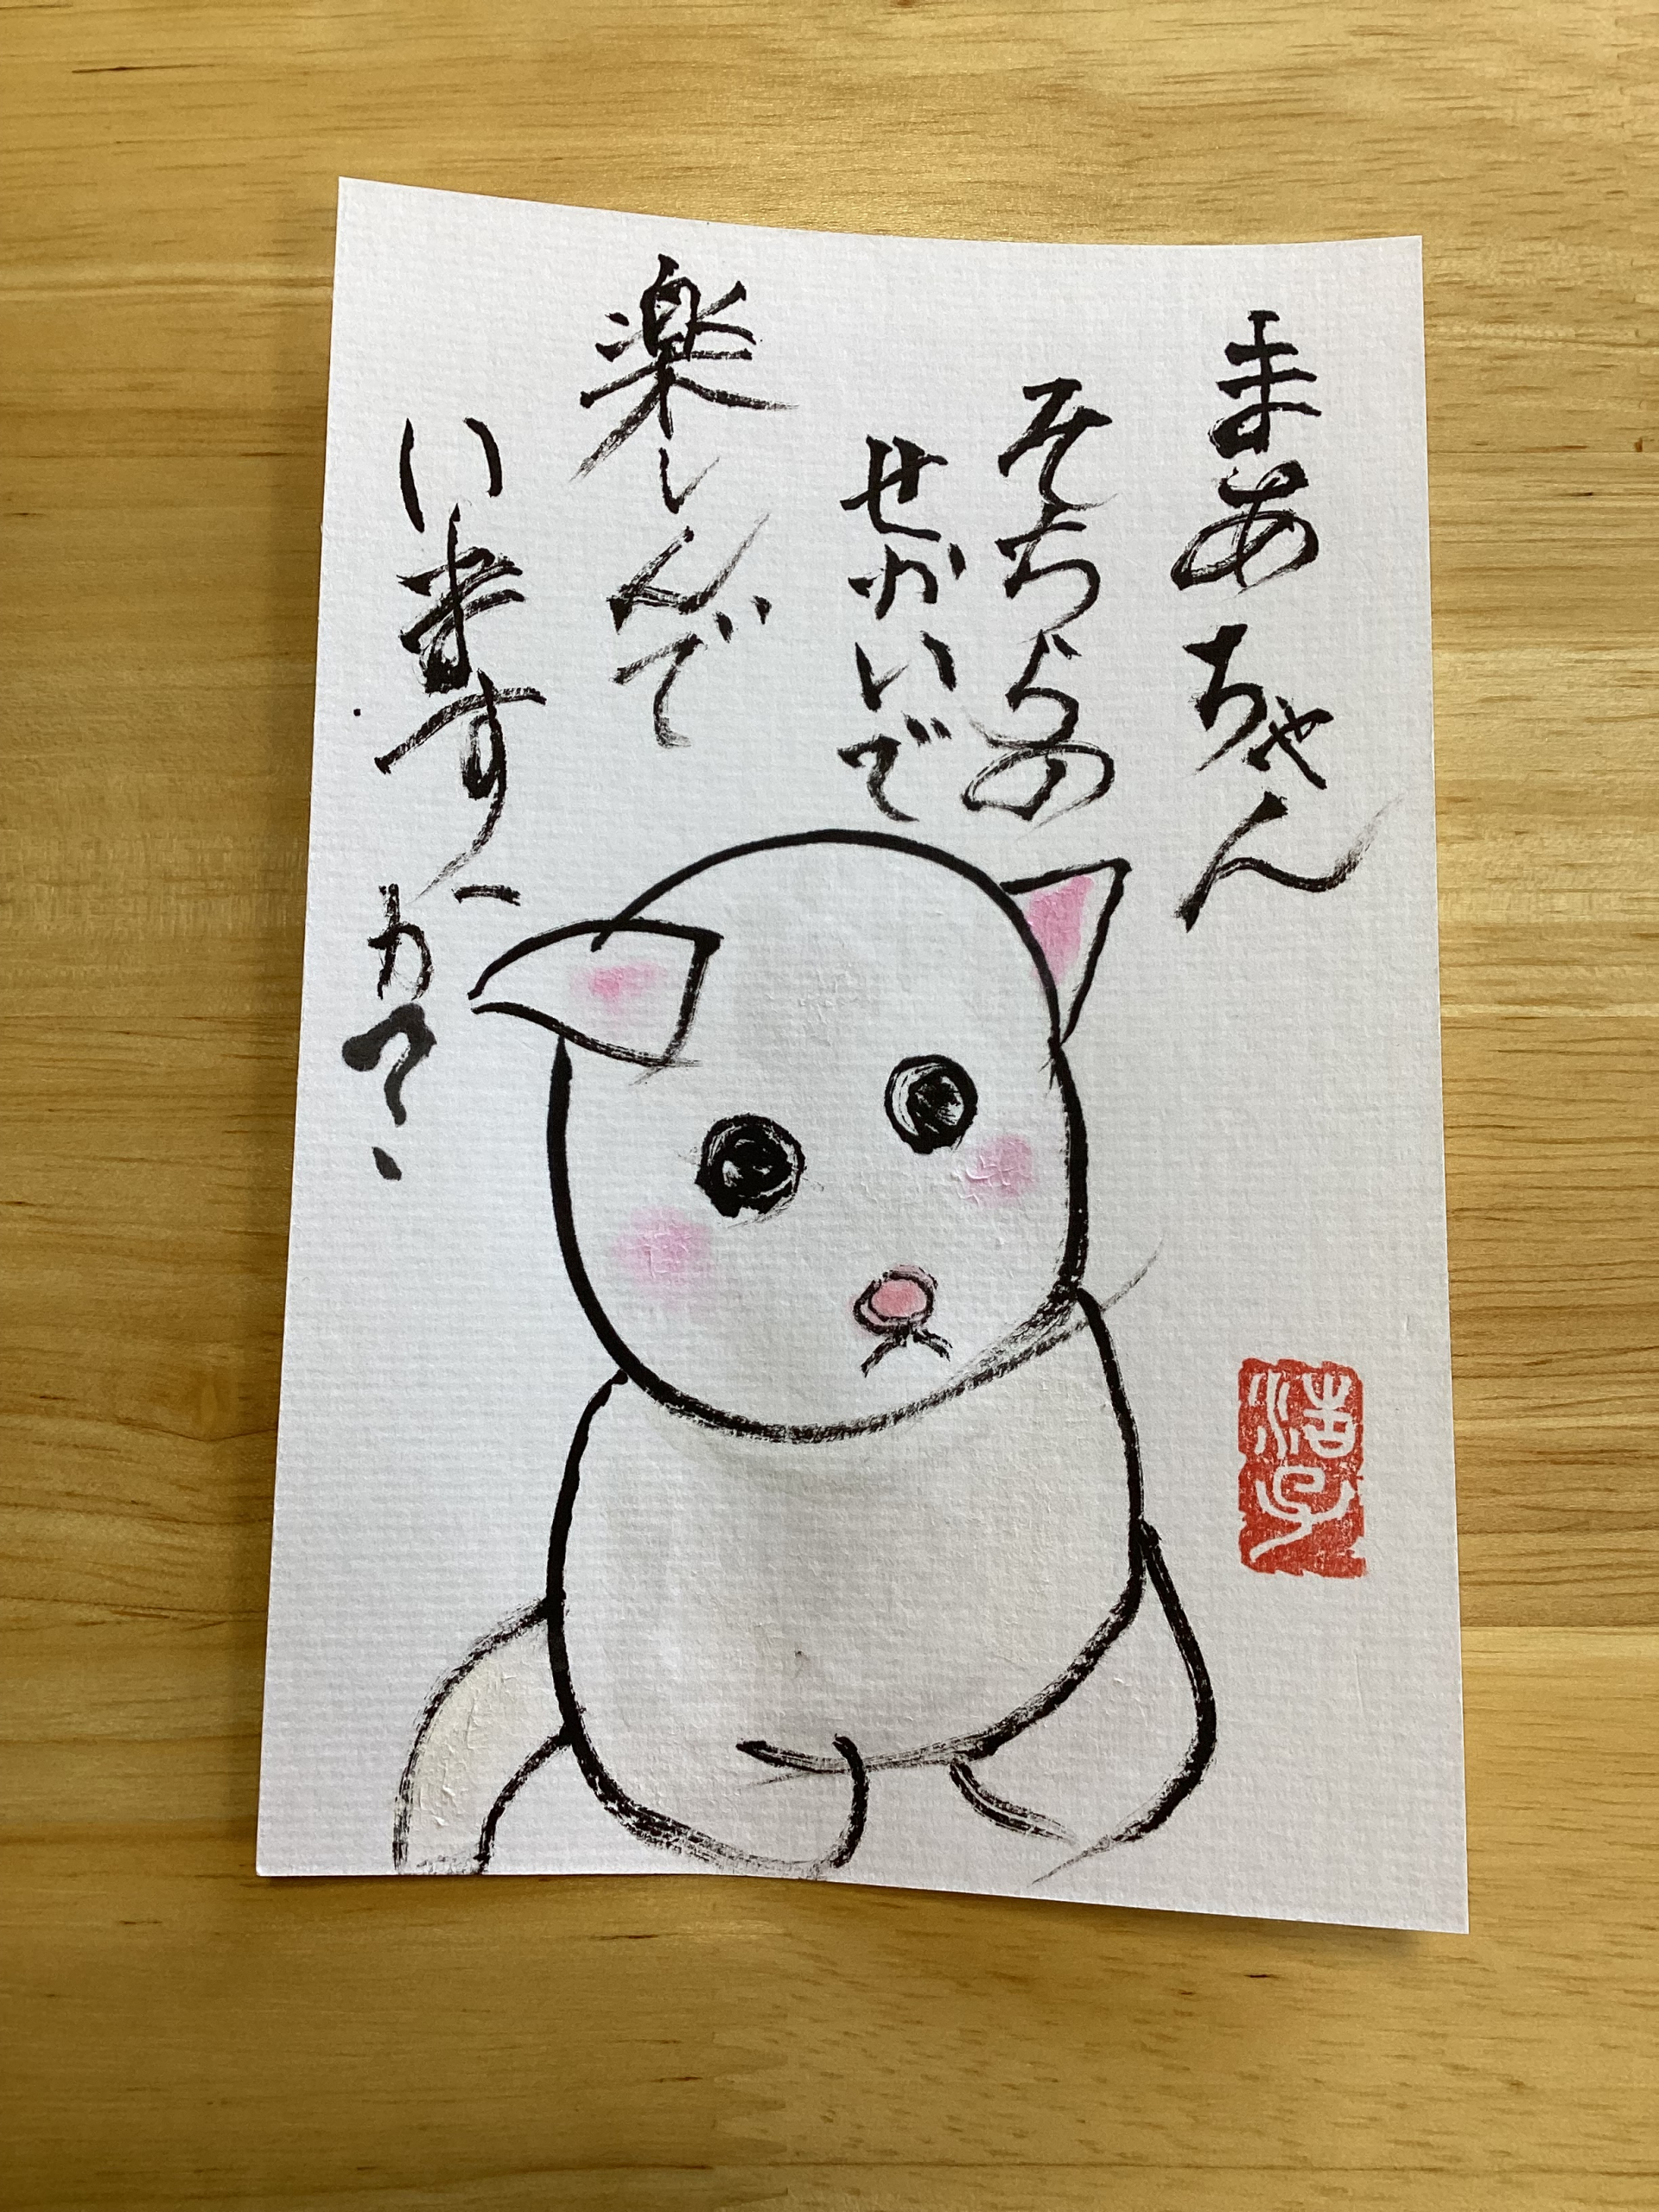 まあちゃん
そちらの
せかいで
楽しんで
いますか?
浩子